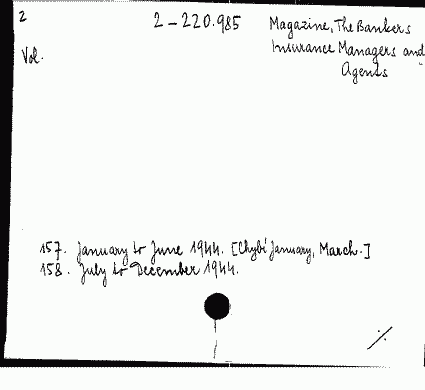 2
2-220.985
Magazine, The Bankers
Insurance Managers and
Agents
Vol.
157. January to June 1944. [Chybí January, March.]
158. July to December 1944.
./.